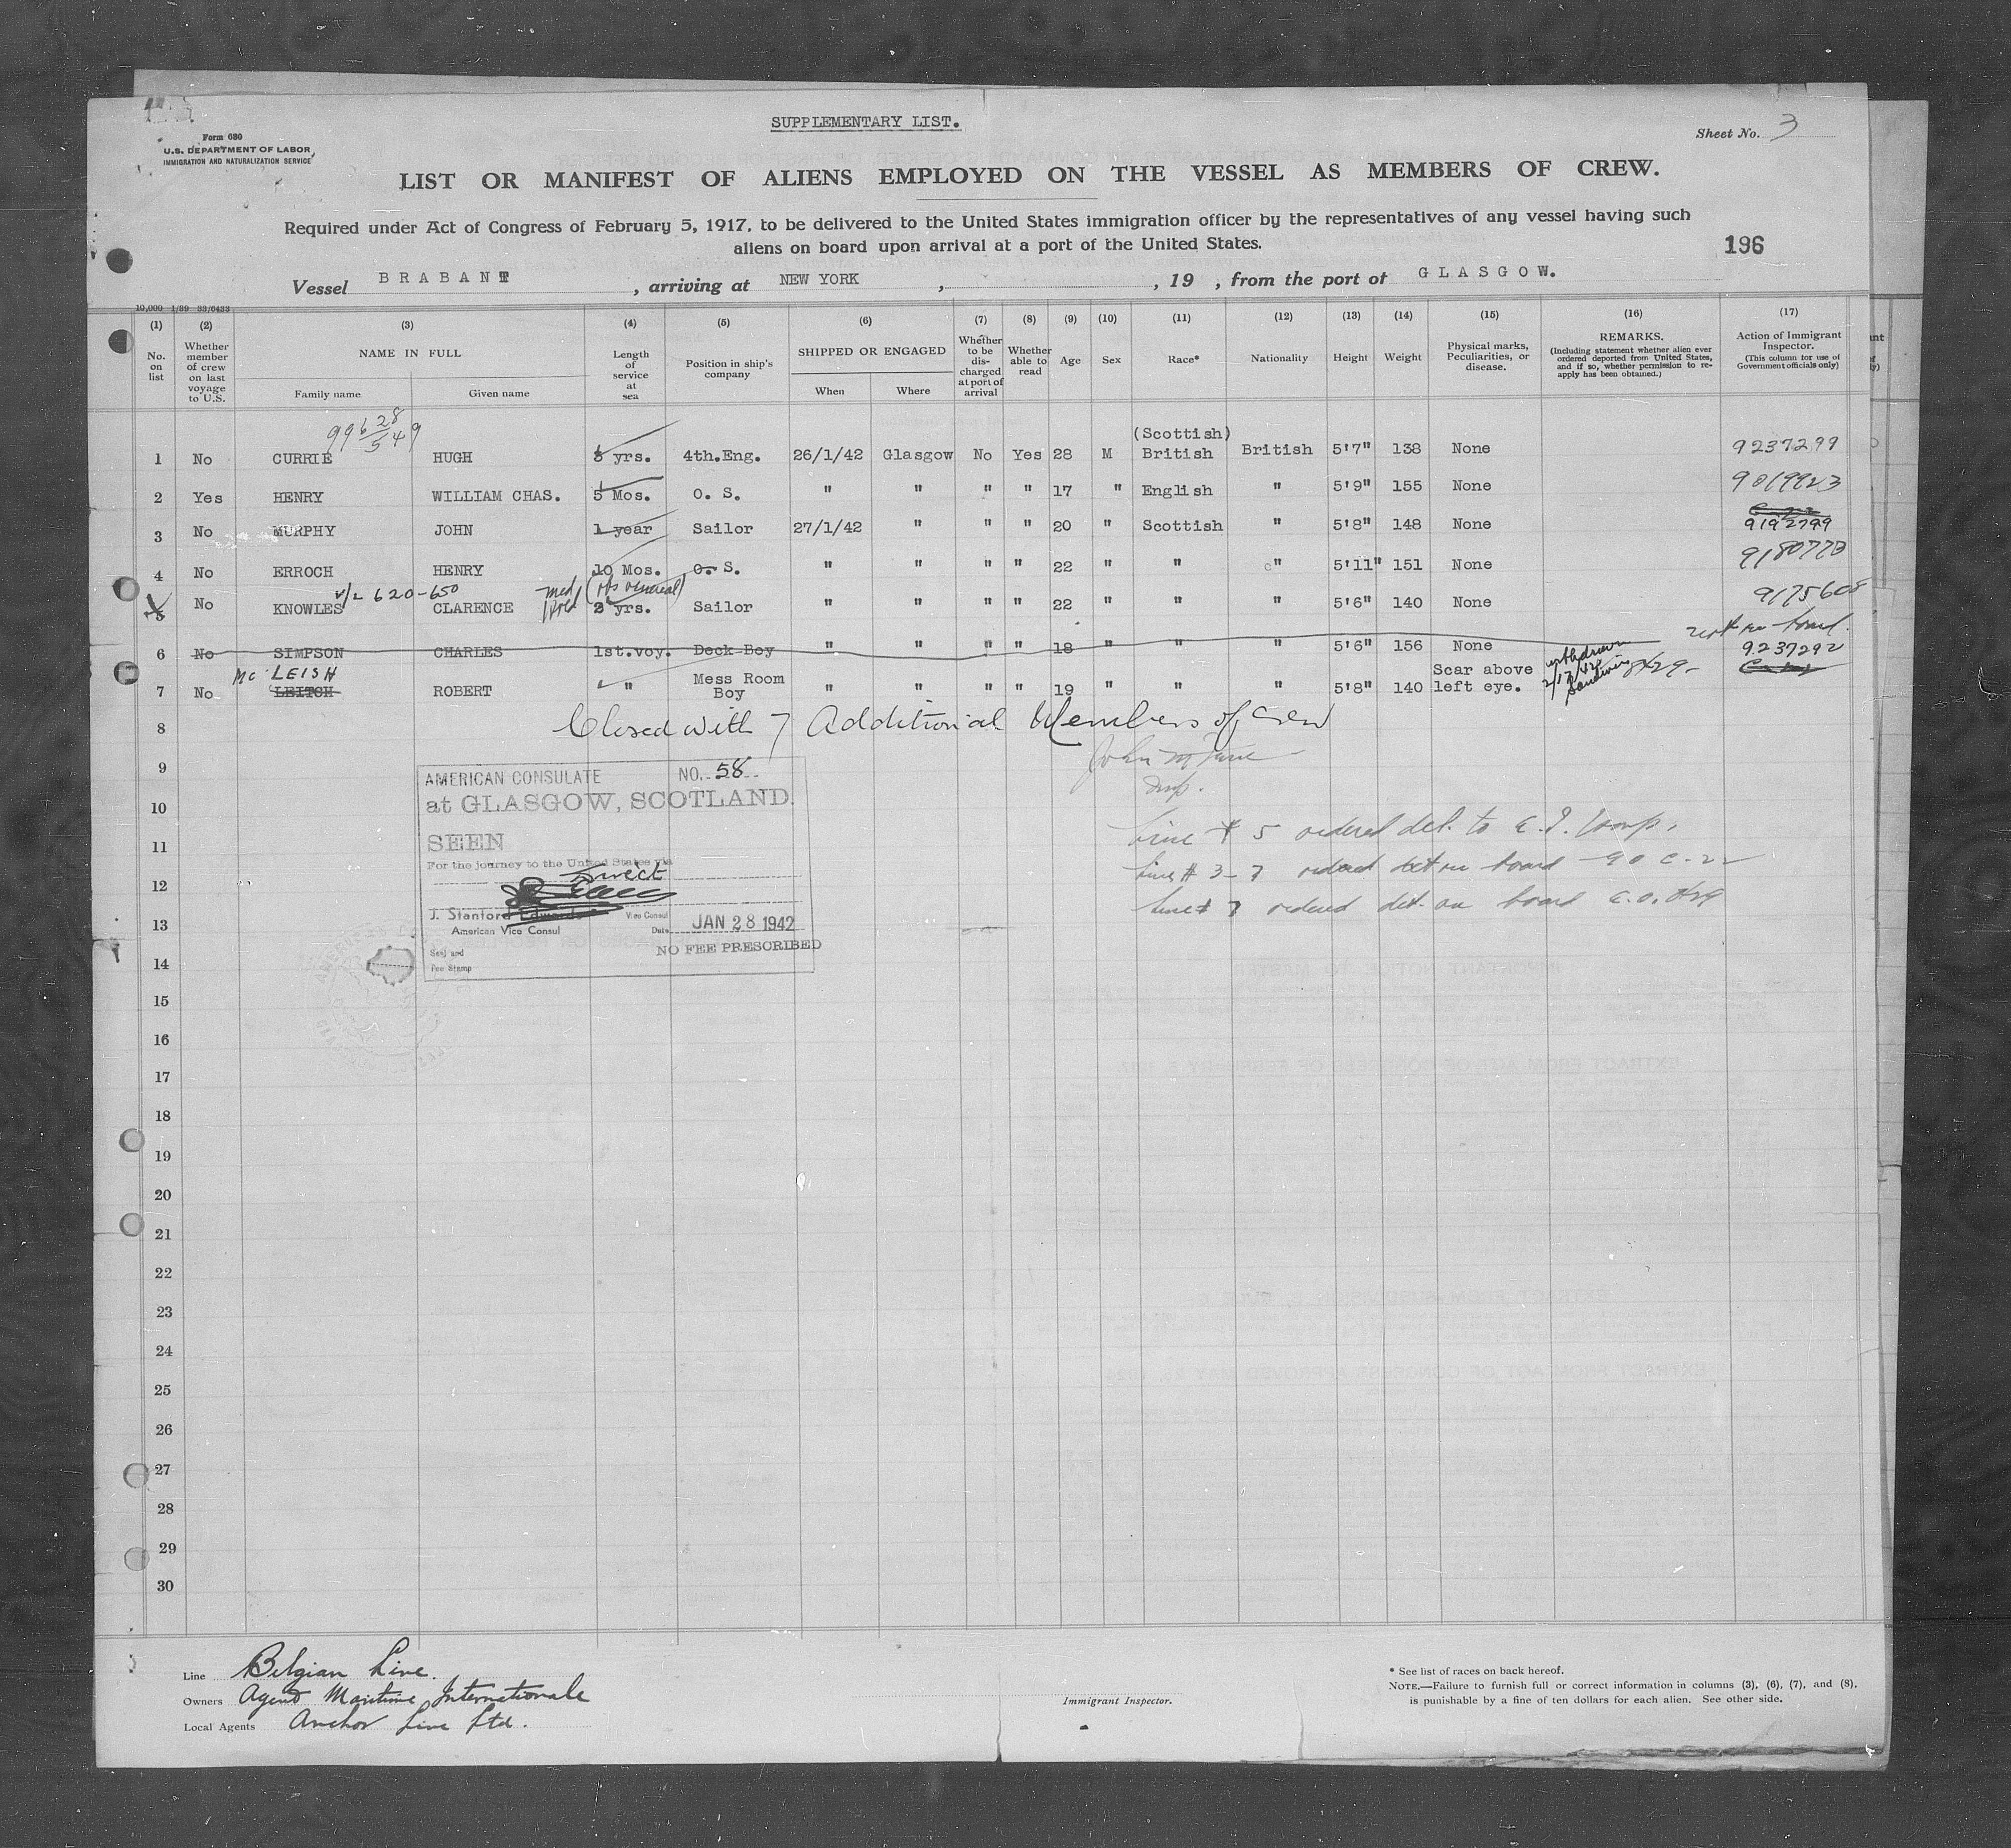 SUPPLEMENTARY LIST.
Form 680
U.S. DEPARTMENT OF LABOR
IMMIGRATION AND NATURALIZATION SERVICE
Sheet No. 3
LIST OR MANIFEST OF ALIENS EMPLOYED ON THE VESSEL AS MEMBERS OF CREW.
Required under Act of Congress of February 5, 1917, to be delivered to the United States immigration officer by the representatives of any vessel having such
aliens on board upon arrival at a port of the United States.
196
Vessel BRABANT, arriving at NEW YORK, , 19 , from the port of GLASGOW.
10,000 1/39 33/0433
(1) (2) (3) (4) (5) (6) (7) (8) (9) (10) (11) (12) (13) (14) (15) (16) (17)
No. on list
Whether member of crew on last voyage to U.S.
NAME IN FULL
Family name
Given name
Length of service at sea
Position in ship's company
SHIPPED OR ENGAGED
When
Where
Whether to be discharged at port of arrival
Whether able to read
Age
Sex
Race*
Nationality
Height
Weight
Physical marks, Peculiarities, or disease.
REMARKS.
(Including statement whether alien ever ordered deported from United States, and if so, whether permission to re-apply has been obtained.)
Action of Immigrant Inspector.
(This column for use of Government officials only)
99628
549
(Scottish)
1 No CURRIE HUGH yrs. 4th.Eng. 26/1/42 Glasgow No Yes 28 M British British 5'7" 138 None 9237299
2 Yes HENRY WILLIAM CHAS. 5 Mos. O. S. " " " " 17 " English " 5'9" 155 None 9019923
3 No MURPHY JOHN 1 year Sailor 27/1/42 " " " 20 " Scottish " 5'8" 148 None 9192799
4 No ERROCH HENRY 10 Mos. O. S. " " " " 22 " " " 5'11" 151 None
620-650
5 No KNOWLES CLARENCE yrs. Sailor " " " " 22 " " " 5'6" 140 None
6 No SIMPSON CHARLES 1st.voy. Deck Boy " " " 18 " " " 5'6" 156 None
9237292
Mc LEISH
7 No LEITCH ROBERT " Mess Room Boy " " " " 19 " " " 5'8" 140 Scar above left eye.
8 Closed with 7 Additional Members of Crew
9
10
Line # 5 ordered det. to E.I.
11
Line # 3-7 ordered det on board
12
Line # 7 ordered det. on board
13
14
15
16
17
18
19
20
21
22
23
24
25
26
27
28
29
30
AMERICAN CONSULATE NO. 58
at GLASGOW, SCOTLAND.
SEEN
For the journey to the United States via
Direct
J. Stanford Edwards Vice Consul
American Vice Consul Date JAN 28 1942
Seal and NO FEE PRESCRIBED
Fee Stamp
Line Belgian Line.
Owners Agence Maritime Internationale
Local Agents Anchor Line Ltd.
Immigrant Inspector.
* See list of races on back hereof.
NOTE.—Failure to furnish full or correct information in columns (3), (6), (7), and (8),
is punishable by a fine of ten dollars for each alien. See other side.